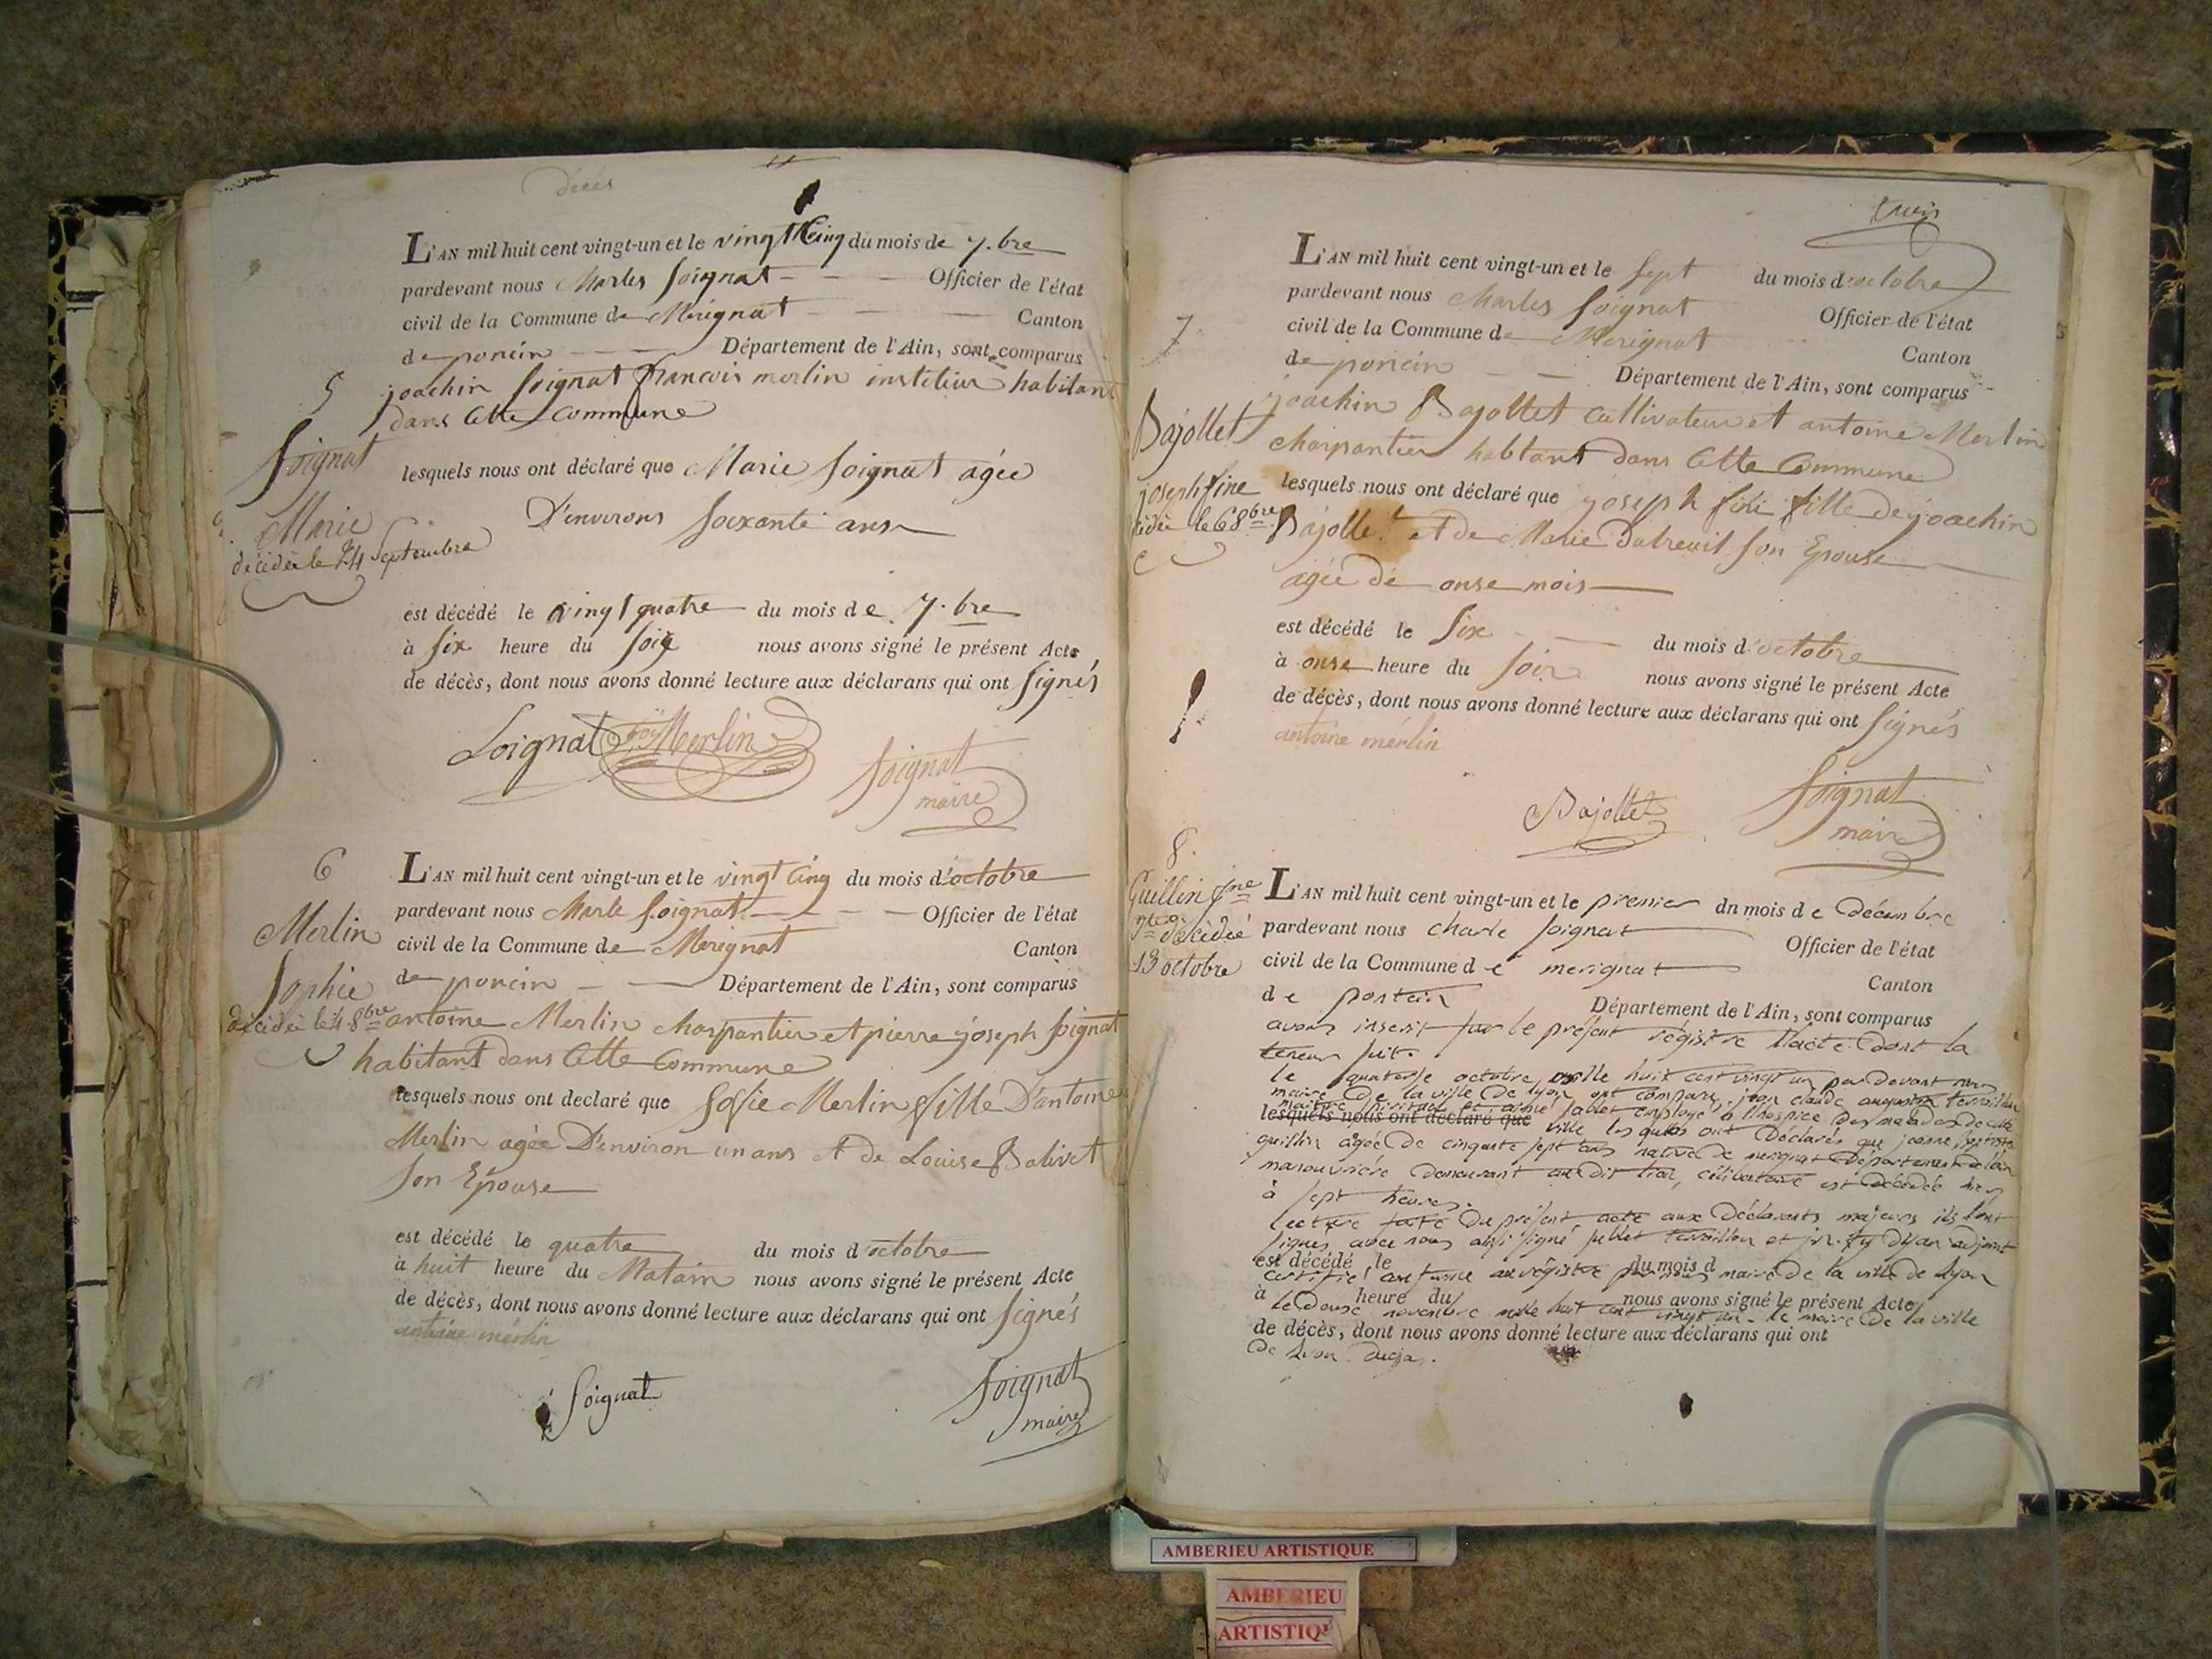 décés
L'AN mil huit cent vingt-un et le vingt Cinq du mois de 7.bre
pardevant nous Charles Soignat Officier de l'état
civil de la Commune de Mérignat Canton
de poncin Département de l'Ain, sont comparus
joachin Soignat françois merlin institeur habitant
dans Cette Commune
5
Soignat
Marie
décédée le 24 Septembre
lesquels nous ont déclaré que Marie Soignat agée
D'environs Soixante ans
est décédé le vingt quatre du mois de 7.bre
à Six heure du Soir nous avons signé le présent Acte
de décès, dont nous avons donné lecture aux déclarans qui ont Signés
Soignat Merlin
Soignat
maire
6
Merlin
Sophie
décédée le 4 8bre
L'AN mil huit cent vingt-un et le vingt Cinq du mois d'octobre
pardevant nous Charle Soignat Officier de l'état
civil de la Commune de Merignat Canton
de poncin Département de l'Ain, sont comparus
antoine Merlin Charpantier et pierre joseph Soignat
habitant dans Cette Commune
lesquels nous ont declaré que Sofie Merlin fille D'antoine
Merlin agée D'environ un ans et de Louise Balivet
Son Epouse
est décédé le quatre du mois d'octobre
à huit heure du Matain nous avons signé le présent Acte
de décès, dont nous avons donné lecture aux déclarans qui ont Signés
antoine mérlin
Soignat
Soignat
maire
L'AN mil huit cent vingt-un et le Sept du mois d'octobre
pardevant nous Charles Soignat Officier de l'état
civil de la Commune de Merignat Canton
de poncin Département de l'Ain, sont comparus
joachin Bajollet Cultivateur et antoine Merlin
Charpantier habtant dans Cette Commune
7
Bajollet
joseph fine
décédée le 6 8bre
lesquels nous ont déclaré que joseph fine fille de joachin
Bajollet et de Marie Dubreuil Son Epouse
agée de onse mois
est décédé le Six du mois d'octobre
à onse heure du Soir nous avons signé le présent Acte
de décès, dont nous avons donné lecture aux déclarans qui ont Signés
antoine mérlin
Bajollet
Soignat
maire
8.
Guillin
décédée
13 octobre
L'AN mil huit cent vingt-un et le premier dn mois de Décembre
pardevant nous charle Soignat Officier de l'état
civil de la Commune de merignat Canton
de Département de l'Ain, sont comparus
avons inscrit sur le présent régistre l'acte Dont la
teneur suit.
le quatorse octobre mille huit cent vingt un par devant nous
maire De la ville De lyon ont comparu jean claude
lesquels nous ont déclaré que
employé à l'hospice Des malades de cette
ville lesquels ont Déclarés que jeanne
guillin âgée De cinquante sept ans native De merignat Département de l'ain
manouvriére Demeurant au Dit lieu, célibataire est décédée hier
à sept heures.
lecture faite Du présent acte aux Déclarants majeurs ils l'ont
signés avec nous adjoint
est décédé le du mois d
certifié conforme au régistre par nous maire De la ville De Lyon
à heure du nous avons signé le présent Acte
le Douse novembre mille huit cent vingt un. le maire De la ville
de décès, dont nous avons donné lecture aux déclarans qui ont
De Lyon
AMBERIEU ARTISTIQUE
AMBERIEU
ARTISTIQ